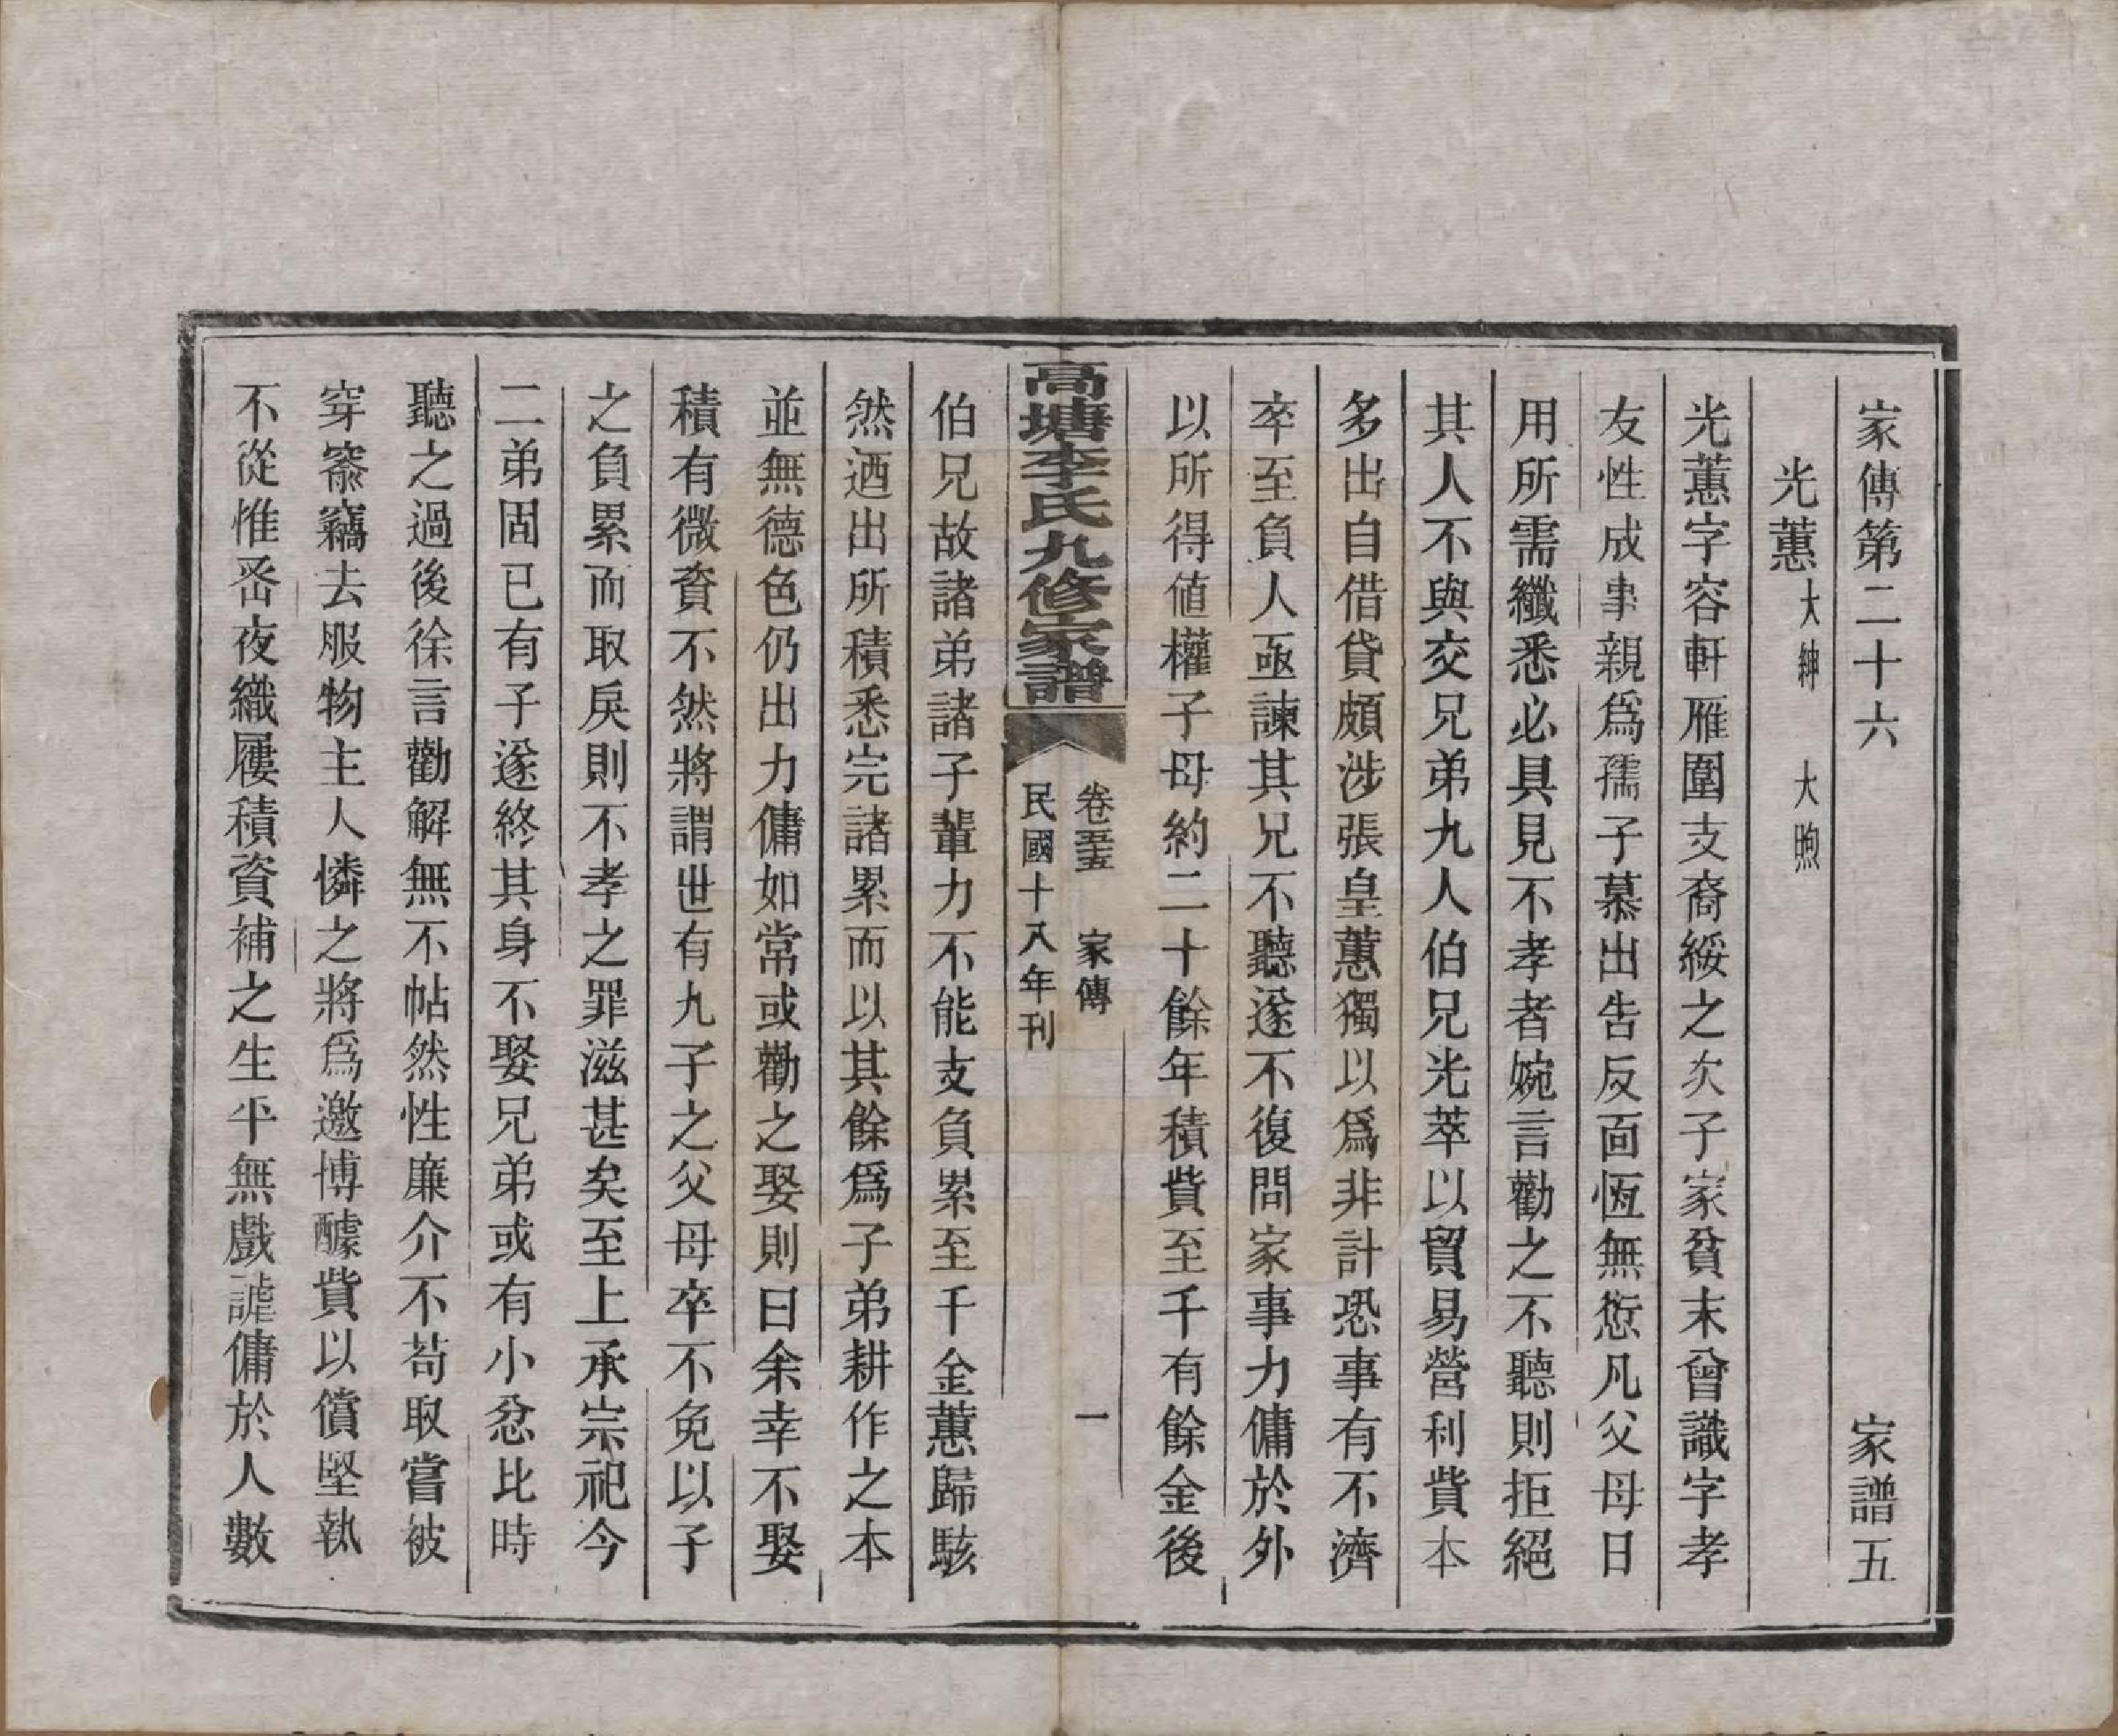 家傳第二十六 家譜五
光蕙 大紳 大煦
光蕙字容軒雁圍支裔綏之次子家貧未曾識字孝
友性成事親爲孺子慕出告反面恆無愆凡父母日
用所需纖悉必具見不孝者婉言勸之不聽則拒絕
其人不與交兄弟九人伯兄光萃以貿易營利貲本
多出自借貸頗涉張皇蕙獨以爲非計恐事有不濟
卒至負人亟諫其兄不聽遂不復問家事力傭於外
以所得値權子母約二十餘年積貲至千有餘金後
高塘李氏九修家譜
卷五 家傳 一
民國十八年刊
伯兄故諸弟諸子輩力不能支負累至千金蕙歸駭
然迺出所積悉完諸累而以其餘爲子弟耕作之本
並無德色仍出力傭如常或勸之娶則曰余幸不娶
積有微資不然將謂世有九子之父母卒不免以子
之負累而取戾則不孝之罪滋甚矣至上承宗祀今
二弟固已有子遂終其身不娶兄弟或有小忿比時
聽之過後徐言勸解無不帖然性廉介不苟取嘗被
穿窬竊去服物主人憐之將爲邀博醵貲以償堅執
不從惟昏夜織屨積資補之生平無戲謔傭於人數